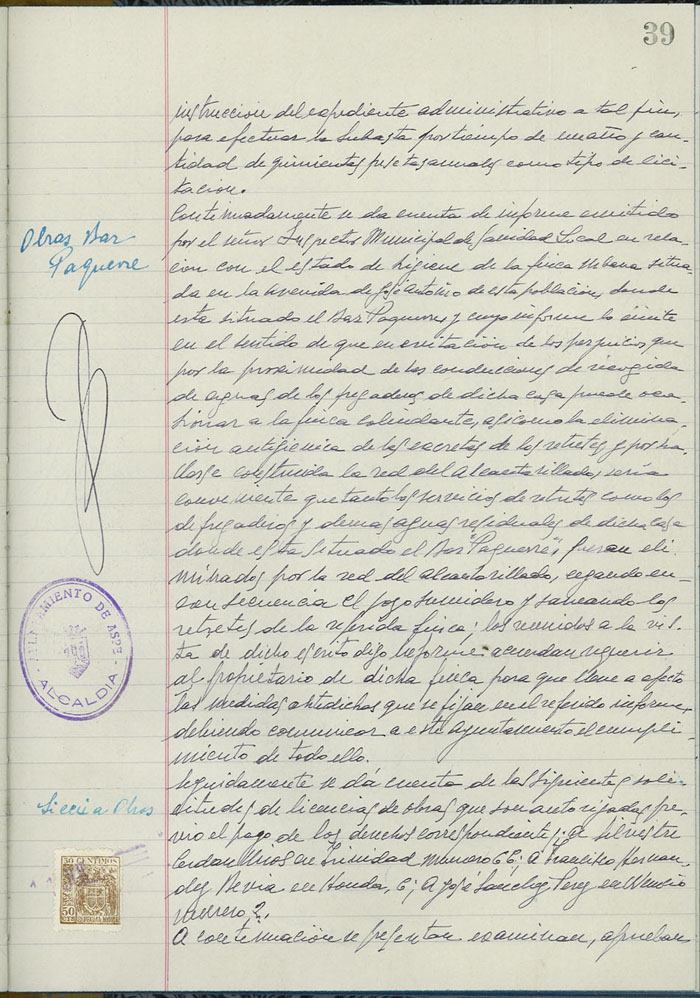 39
instruccion del expediente administrativo a tal fin,
para efectuar la subasta por tiempo de un año y can-
tidad de quinientas pesetas anuales como tipo de lici-
tacion.
Obras Bar
Paquerre
Continuadamente se da cuenta de informe emitido
por el señor Inspector Municipal de Sanidad Local en rela-
cion con el estado de higiene de la finca urbana situa-
da en la Avenida de José Antonio de esta poblacion, donde
esta situado el Bar Paquerre y cuyo informe lo emite
en el sentido de que en evitación de los perjuicios que
por la proximidad de las conducciones de recogida
de aguas de los fregaderos de dicha casa puede oca-
sionar a la finca colindante, asi como la elimina-
ción antigienica de las excretas de los retretes y por ha-
llarse construida la red del alcantarillado, seria
conveniente que tanto los servicios de retretes como los
de fregaderos y demas aguas residuales de dicha casa
donde esta situado el Bar "Paquerre", fueran eli-
minados por la red del alcantarillado, cegando en
consecuencia el pozo sumidero y saneando los
retretes de la referida finca; los reunidos a la vis-
ta de dicho escrito digo informe acuerdan requerir
al propietario de dicha finca para que lleve a efecto
las medidas antedichas que se fijan en el referido informe,
debiendo comunicar a este Ayuntamiento el cumpli-
miento de todo ello.
AYUNTAMIENTO DE ASPE
ALCALDIA
Obras
Seguidamente se dá cuenta de las siguientes soli-
citudes de licencias de obras que son autorizadas pre-
vio el pago de los derechos correspondientes; a Silvestre
Cerdan en Trinidad numero 66; a Francisco Hernan-
dez Devia en Honda, 6; A José Sanchez Perez en
numero 2.
50 CENTIMOS
50
CTS
A continuación se presentan, examinan, aprueban